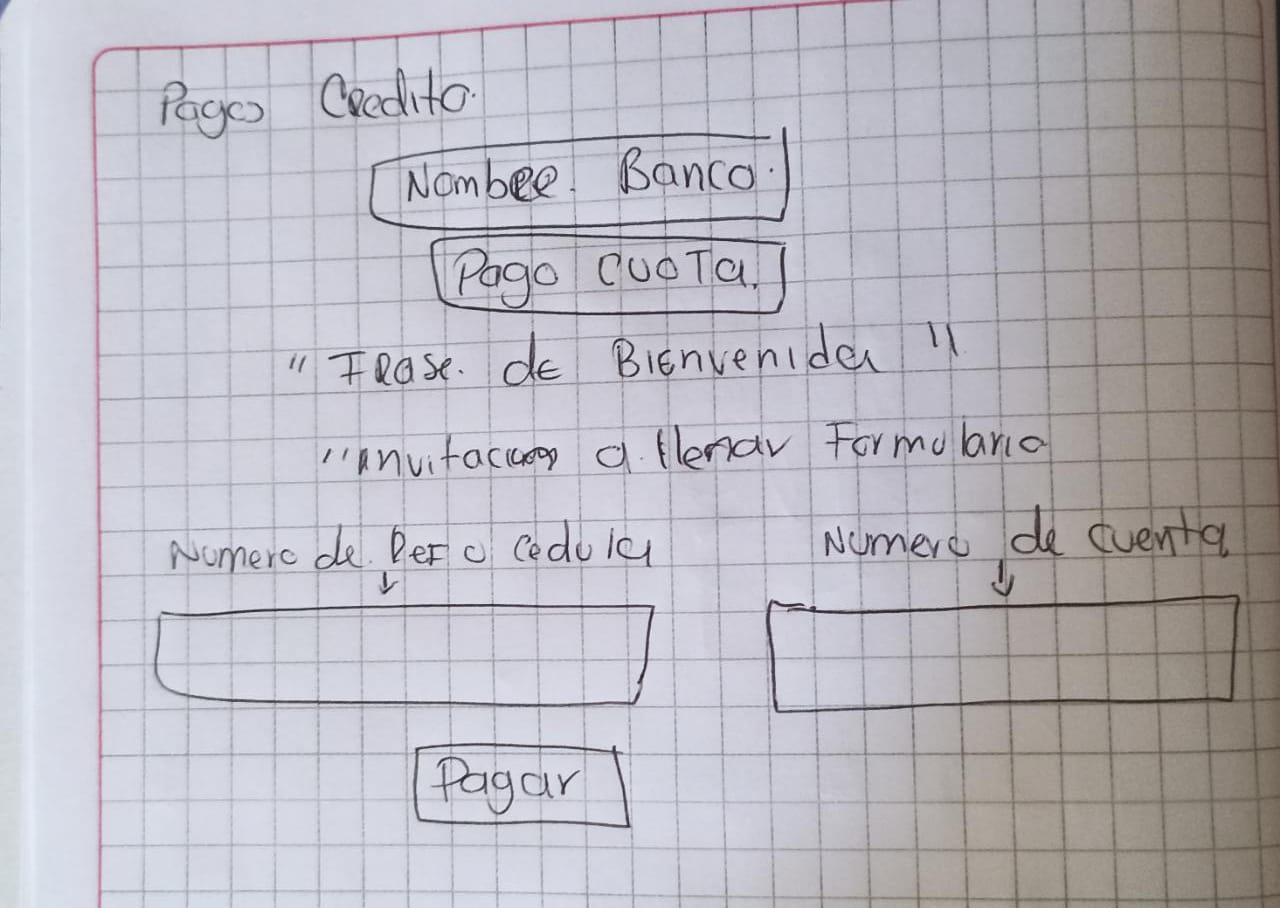 Pago Credito.
Nombre. Banco.
Pago cuota.
"Frase. de Bienvenida"
"invitacion a llenar Formulario
Numero de Ref o Cedula
Numero de cuenta
Pagar